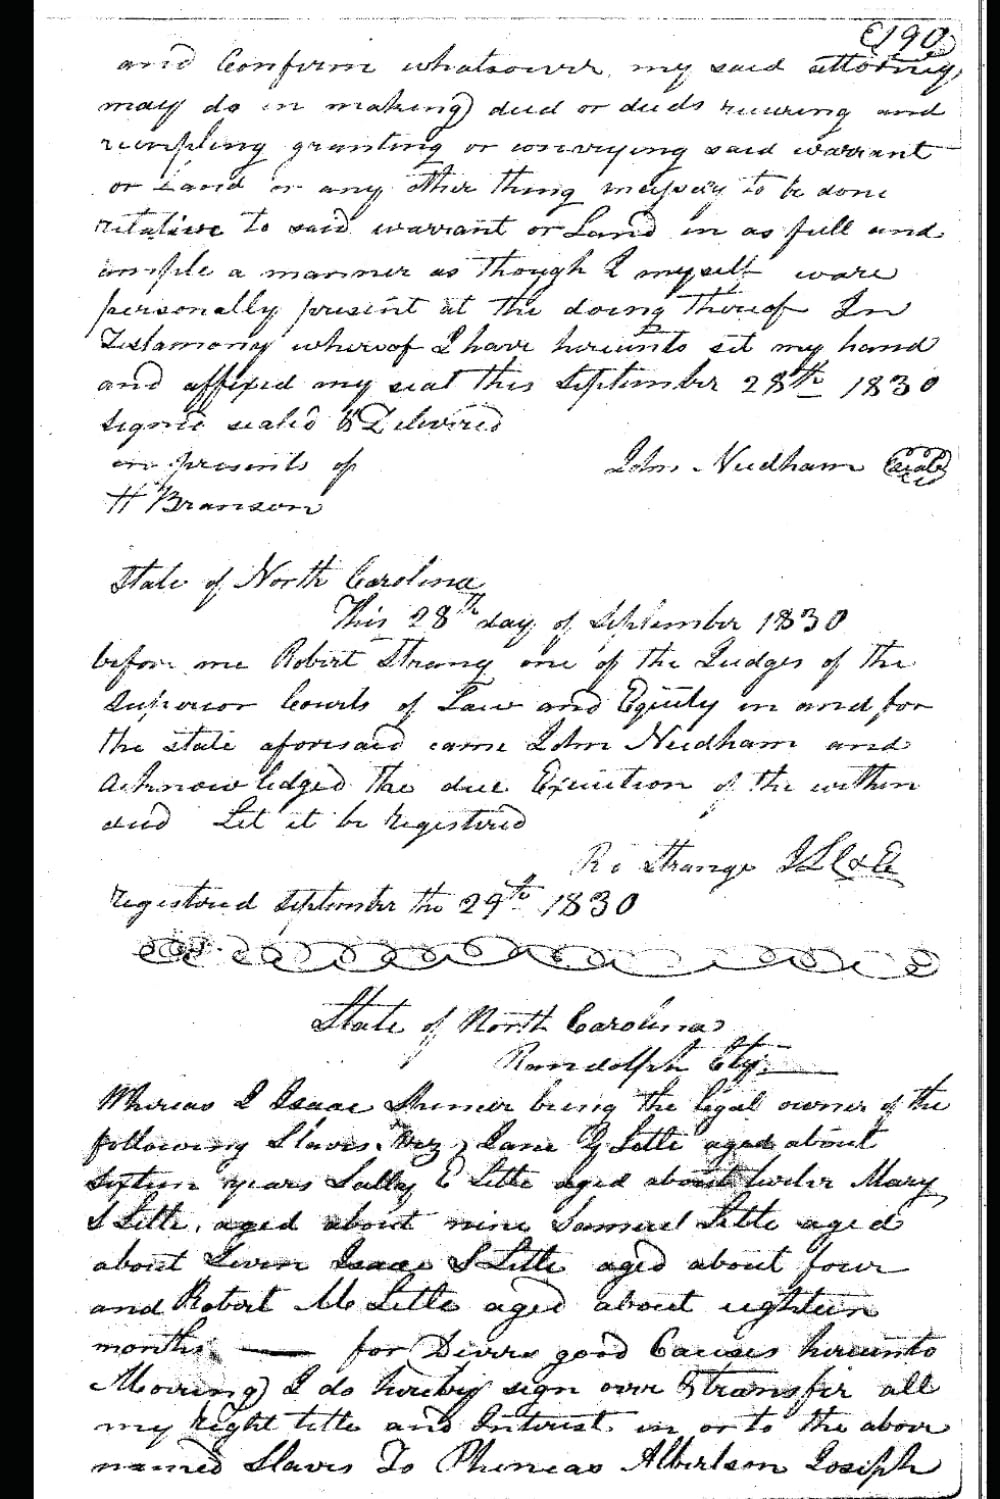 (190)
and Confirm whatsoever my said attorney
may do in making deed or deeds receiving and
receipting granting or conveying said warrant
or Land or any other thing to be done
relative to said warrant or Land in as full and
ample a manner as though I myself ware
personally present at the doing thereof In
Testamony whereof I have hereunto set my hand
and affixed my seal this September 28th 1830
signed sealed & Delivered
in presents of John Needham (seal)
H Branson
State of North Carolina
This 28th day of September 1830
before me Robert Strang one of the Judges of the
Superior Courts of Law and Equity in and for
the state aforesaid came John Needham and
acknowledged the due Execution of the within
deed Let it be registered
Ro Strange J L C & E
registered September the 29th 1830
State of North Carolina
Randolph Cty
Whereas I Isaac being the legal owner of the
following Slaves Viz, Jane Y Little aged about
Sixteen years Sally E Little aged about twelve Mary
S Little aged about nine Samuel Little aged
about Seven Isaac S Little aged about four
and Robert Mc Little aged about eighteen
months — for Divers good Causes hereunto
Moving I do hereby sign over & transfer all
my right title and Interest in or to the above
named Slaves To Phineas Albertson Joseph